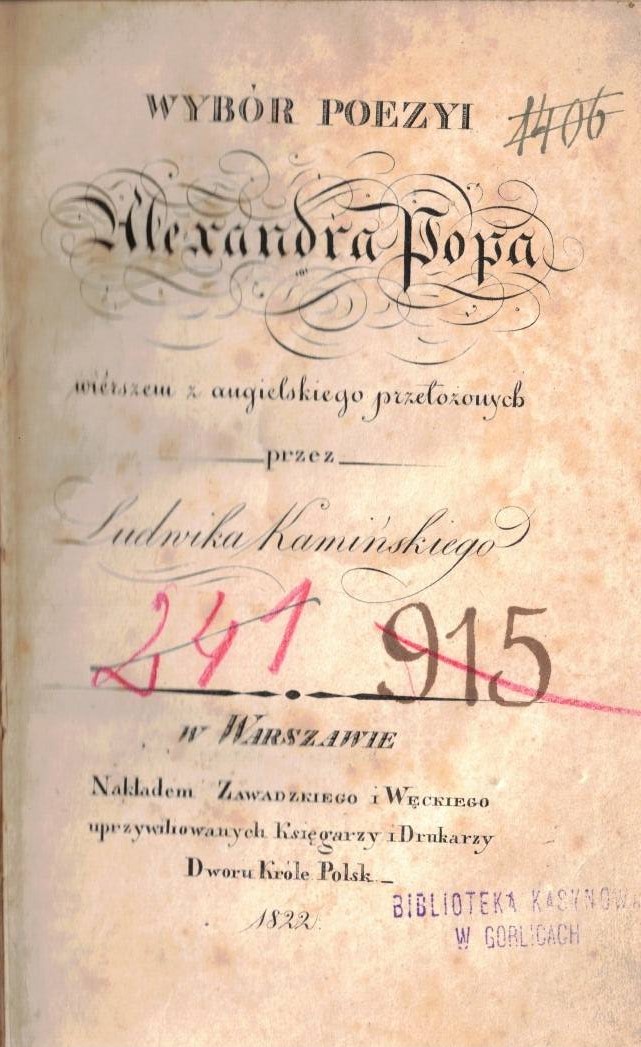 WYBÓR POEZYI
1406
Alexandra Popa
wiérszem z angielskiego przełożonych
przez
Ludwika Kamińskiego
241 915
W WARSZAWIE
Nakładem ZAWADZKIEGO i WĘCKIEGO
uprzywiliowanych Księgarzy i Drukarzy
Dworu Króle Polsk
1822.
BIBLIOTEKA KASYNOWA
W GORLICACH